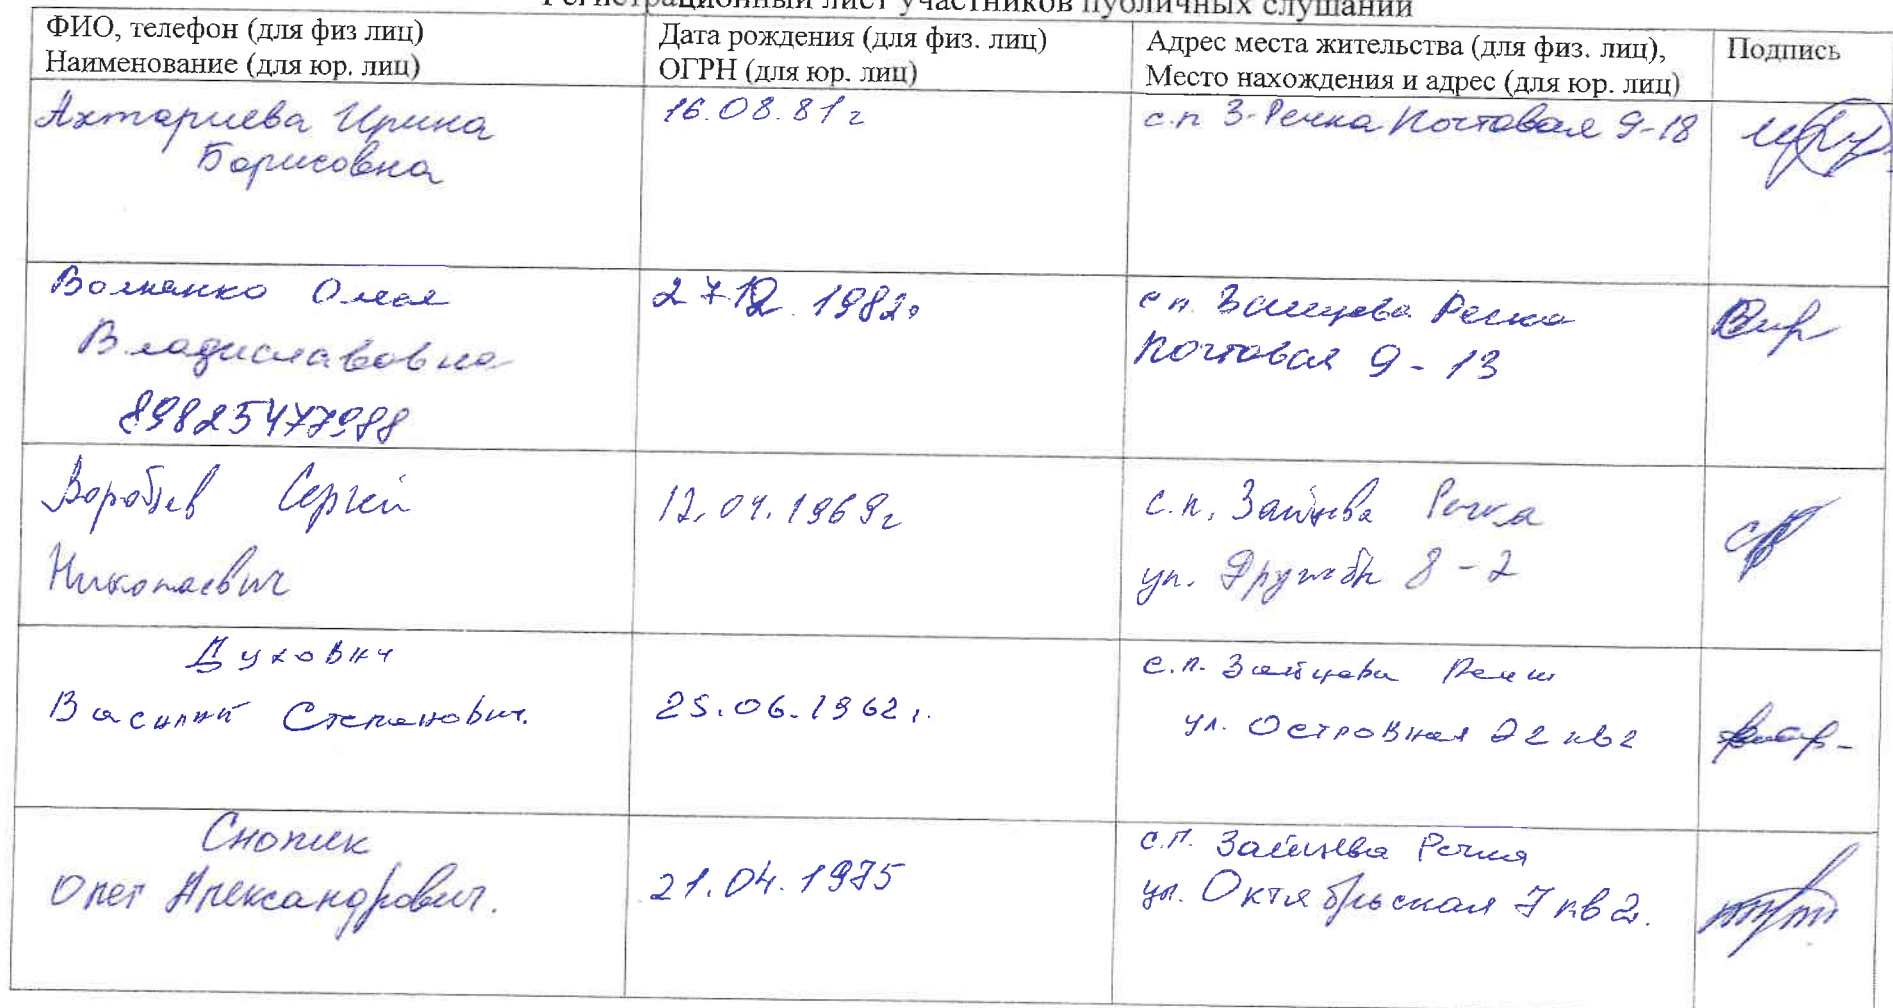 Регистрационный лист участников публичных слушаний
ФИО, телефон (для физ лиц)
Наименование (для юр. лиц)
Дата рождения (для физ. лиц)
ОГРН (для юр. лиц)
Адрес места жительства (для физ. лиц),
Место нахождения и адрес (для юр. лиц)
Подпись
Ахтариева Ирина
Борисовна
16.08.81г
с.п З-Речка Почтовая 9-18
Ольга
Владиславовна
89825477988
27.12.1982г
с п. Зайцева Речка
Почтовая 9-13
Воробьев Сергей
Николаевич
12.04.1969г
с.п. Зайцева Речка
ул. Дружбы 8-2
Духович
Василий Степанович.
25.06.1962г.
с.п. Зайцева Речка
ул. Островная кв2
Снопик
Олег Александрович.
21.04.1975
с.п. Зайцева Речка
ул. Октябрьская 7 кв 2.